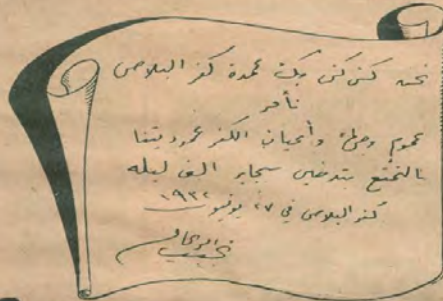 نحن كشكش بك عمدة كفر البلاص
نأمر
عموم وجهاء وأعيان الكفر عموديتنا
بالتمتع بتدخين سجاير الف ليله
كفر البلاص في ٢٧ يونيو ١٩٣٢
نجيب الريحانى